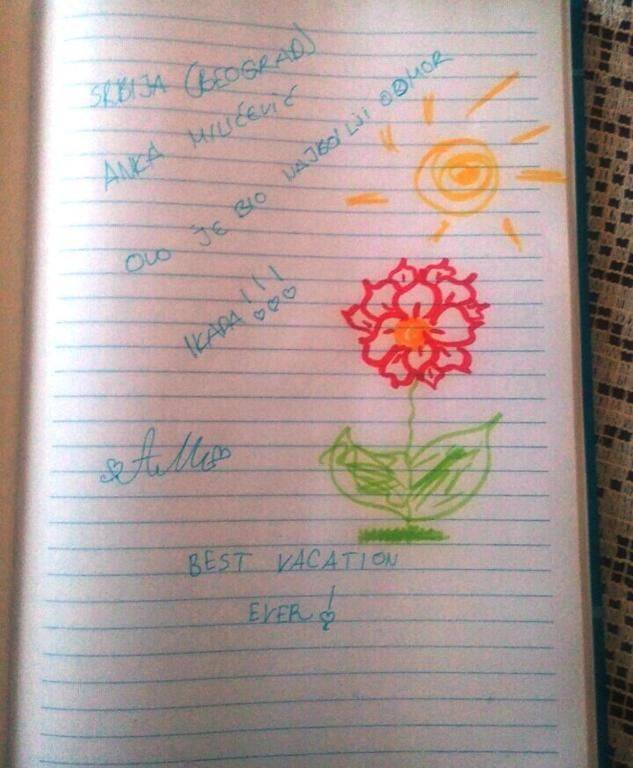 SRBIJA (BEOGRAD)
ANKA MILIĆEVIĆ
OVO JE BIO NAJBOLJI ODMOR
IKADA!!!
AM
BEST VACATION
EVER!